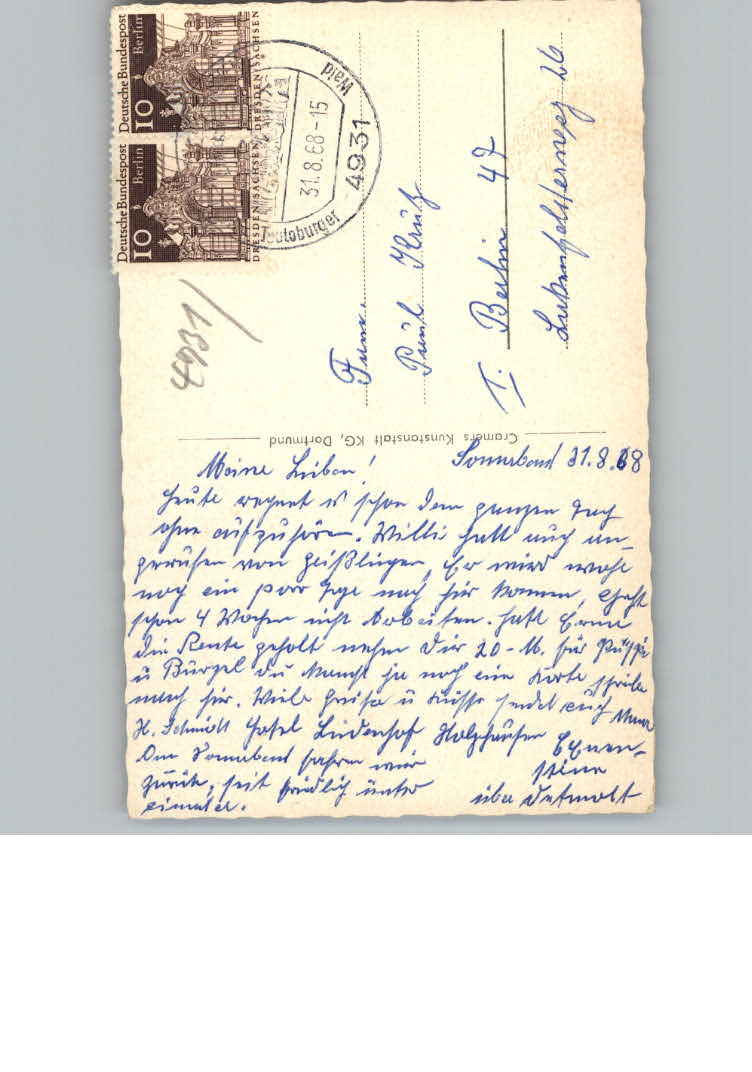 Deutsche Bundespost Berlin
10
DRESDEN/SACHSEN
Deutsche Bundespost Berlin
10
DRESDEN/SACHSEN
4931
31.8.68-15
Teutoburger Wald
4931
Paul
1. Berlin 47
26
Cramers Kunstanstalt KG, Dortmund
Sonnabend 31.8.68
Meine Lieben!
Heute regnet es schon den ganzen Tag
ohne aufzuhören. Willi hatt auch an-
gerufen von Geißlingen, Er wird wohl
noch ein paar Tage nach hier kommen, Geht
schon 4 Wochen nicht Arbeiten. hatt Erna
die Rente geholt nehm Dir 20-M. für
u Bürgel du kannst ja noch eine Karte schreiben
nach hier. Viele Grüße u Küsse sendet euch Mama
H. Schmidt Hotel Lindenhof Holzhausen Extern-
steine
über Detmold
Am Sonnabend fahren wir
zurück, seit friedlich unter
einander.